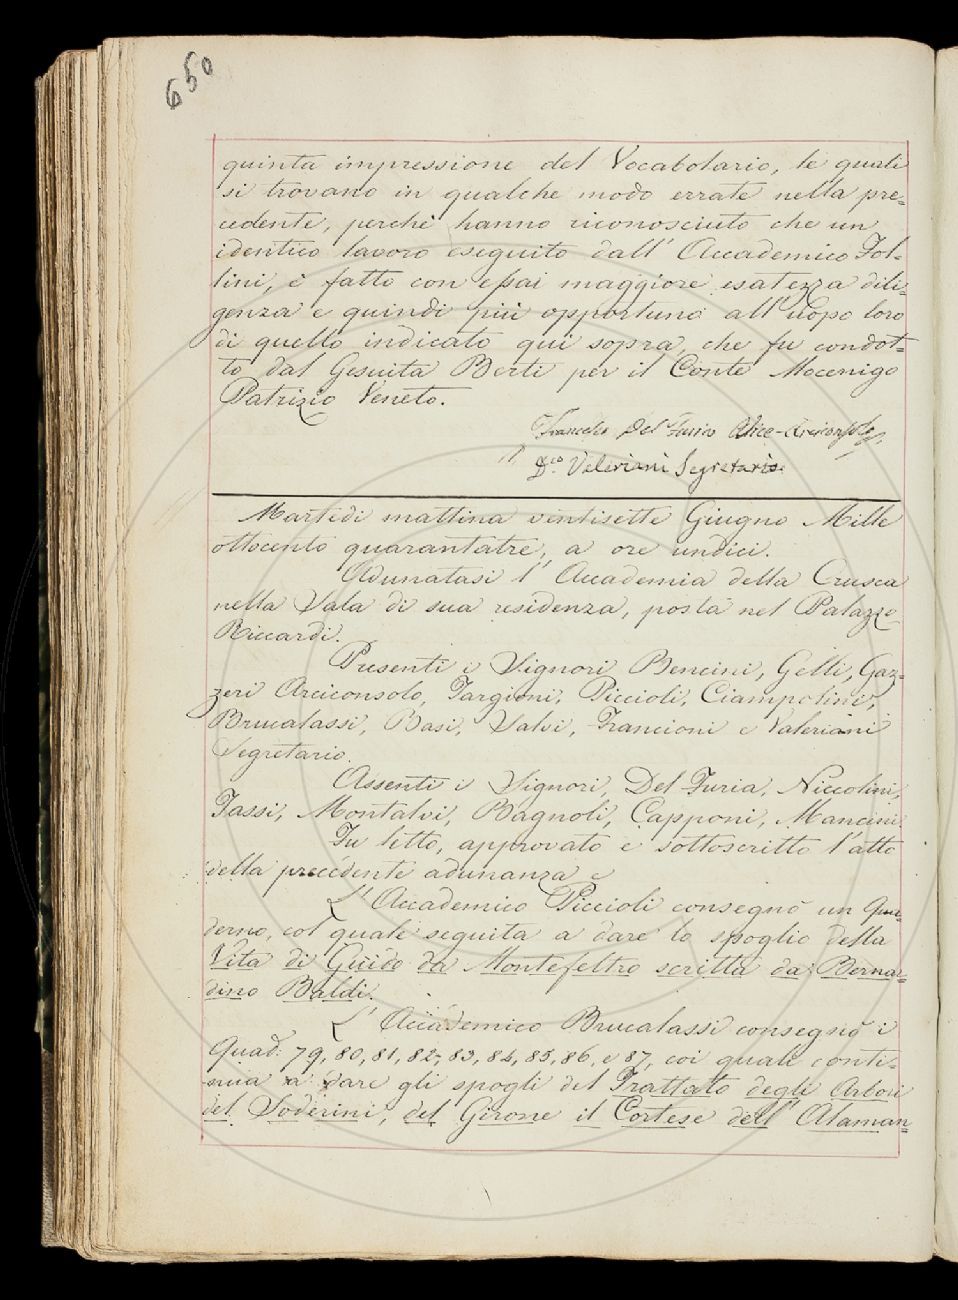 650
quinta impressione del Vocabolario, le quali
si trovano in qualche modo errate nella pre=
cedente, perchè hanno riconosciuto che un
identico lavoro eseguito dall' Accademico Fol=
lini, è fatto con assai maggiore esatezza dili=
genza e quindi più opportuno all'uopo loro
di quello indicato qui sopra, che fu condot=
to dal Gesuita Berti per il Conte Mocenigo
Patrizio Veneto.
Francesco Del Furia Vice-Arciconsolo
D.co Valeriani Segretario.
Martedì mattina ventisette Giugno Mille
ottocento quarantatre, a ore undici.
Adunatasi l' Accademia della Crusca
nella Sala di sua residenza, posta nel Palazzo
Riccardi.
Presenti i Signori Bencini, Gelli, Gaz=
zeri Arciconsolo, Targioni, Piccioli, Ciampolini,
Brucalassi, Basi, Salvi, Francioni e Valeriani
Segretario.
Assenti i Signori, Del Furia, Niccolini,
Tassi, Montalvi, Bagnoli, Capponi, Mancini.
Fu letto, approvato e sottoscritto l'atto
della precedente adunanza e
L' Accademico Piccioli consegnò un Qua=
derno, col quale seguita a dare lo spoglio della
Vita di Guido da Montefeltro scritta da Bernar=
dino Baldi.
L' Accademico Brucalassi consegnò i
Quad: 79, 80, 81, 82, 83, 84, 85, 86, e 87, coi quali conti=
nua a dare gli spogli del Trattato degli Arbori
del Soderini, del Girone il Cortese dell' Alaman=